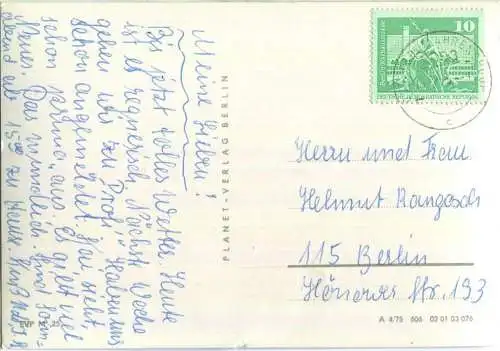 Meine Lieben!
Bis jetzt tolles Wetter. Heute
ist es regnerisch. Nächste Woche
gehen wir zu Prof.
schon angemeldet. Hier sieht
schon "prima" aus. Es gibt viel
Neues. Das mündlich. Sind Sonn-
abend ab 15⁰⁰ zu Hause. Gruß
PLANET-VERLAG BERLIN
EVP M -,25
10
DEUTSCHE DEMOKRATISCHE REPUBLIK
Herrn und Frau
Helmut Rangosch
115 Berlin
Hönower Str. 193
A 4/75 606 03 01 03 076